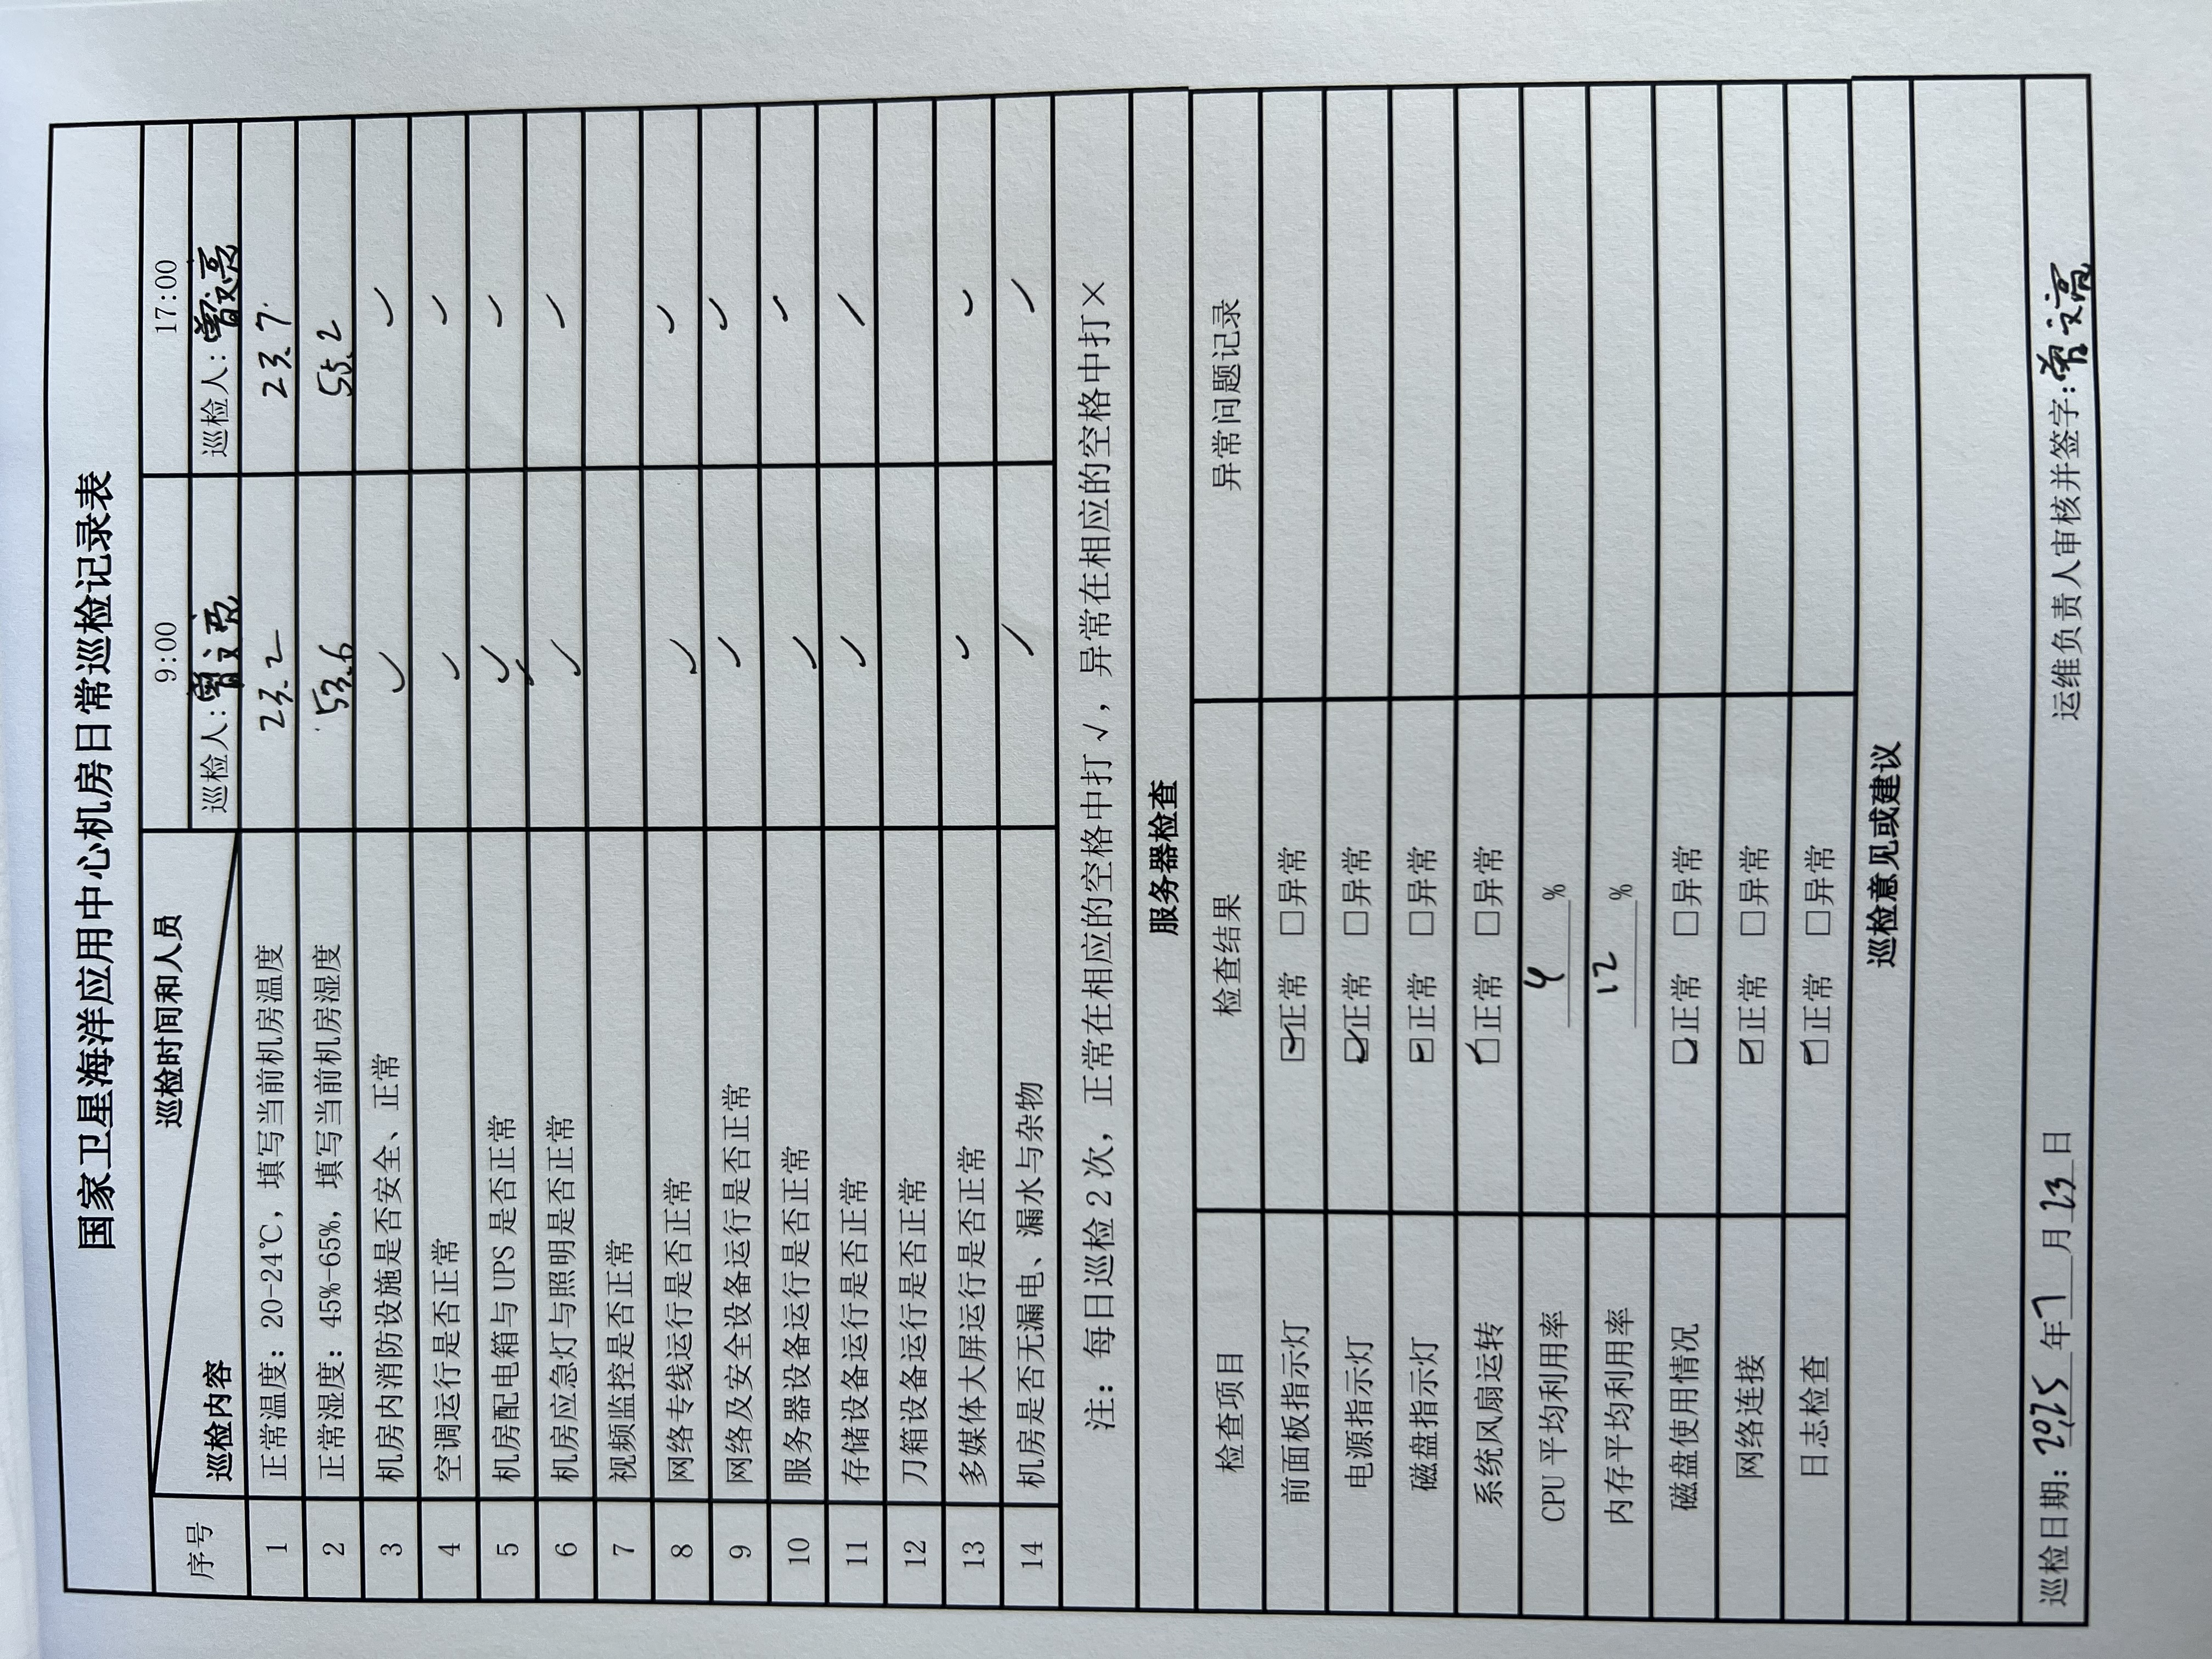 国家卫星海洋应用中心机房日常巡检记录表
序号 巡检内容 巡检时间和人员 9:00 17:00
巡检人:曾文亮 巡检人:曾文亮
1 正常温度：20-24℃，填写当前机房温度 23.2 23.7
2 正常湿度：45%-65%，填写当前机房湿度 53.6 55.2
3 机房内消防设施是否安全、正常 ✓ ✓
4 空调运行是否正常 ✓ ✓
5 机房配电箱与 UPS 是否正常 ✓ ✓
6 机房应急灯与照明是否正常 ✓ ✓
7 视频监控是否正常
8 网络专线运行是否正常 ✓ ✓
9 网络及安全设备运行是否正常 ✓ ✓
10 服务器设备运行是否正常 ✓ ✓
11 存储设备运行是否正常 ✓ ✓
12 刀箱设备运行是否正常
13 多媒体大屏运行是否正常 ✓ ✓
14 机房是否无漏电、漏水与杂物 ✓ ✓
注：每日巡检 2 次，正常在相应的空格中打 √，异常在相应的空格中打×
服务器检查
检查项目 检查结果 异常问题记录
前面板指示灯 ☑正常 □异常
电源指示灯 ☑正常 □异常
磁盘指示灯 ☑正常 □异常
系统风扇运转 ☑正常 □异常
CPU 平均利用率 4 %
内存平均利用率 12 %
磁盘使用情况 ☑正常 □异常
网络连接 ☑正常 □异常
日志检查 ☑正常 □异常
巡检意见或建议
巡检日期：2025 年 7 月 23 日 运维负责人审核并签字:曾文亮